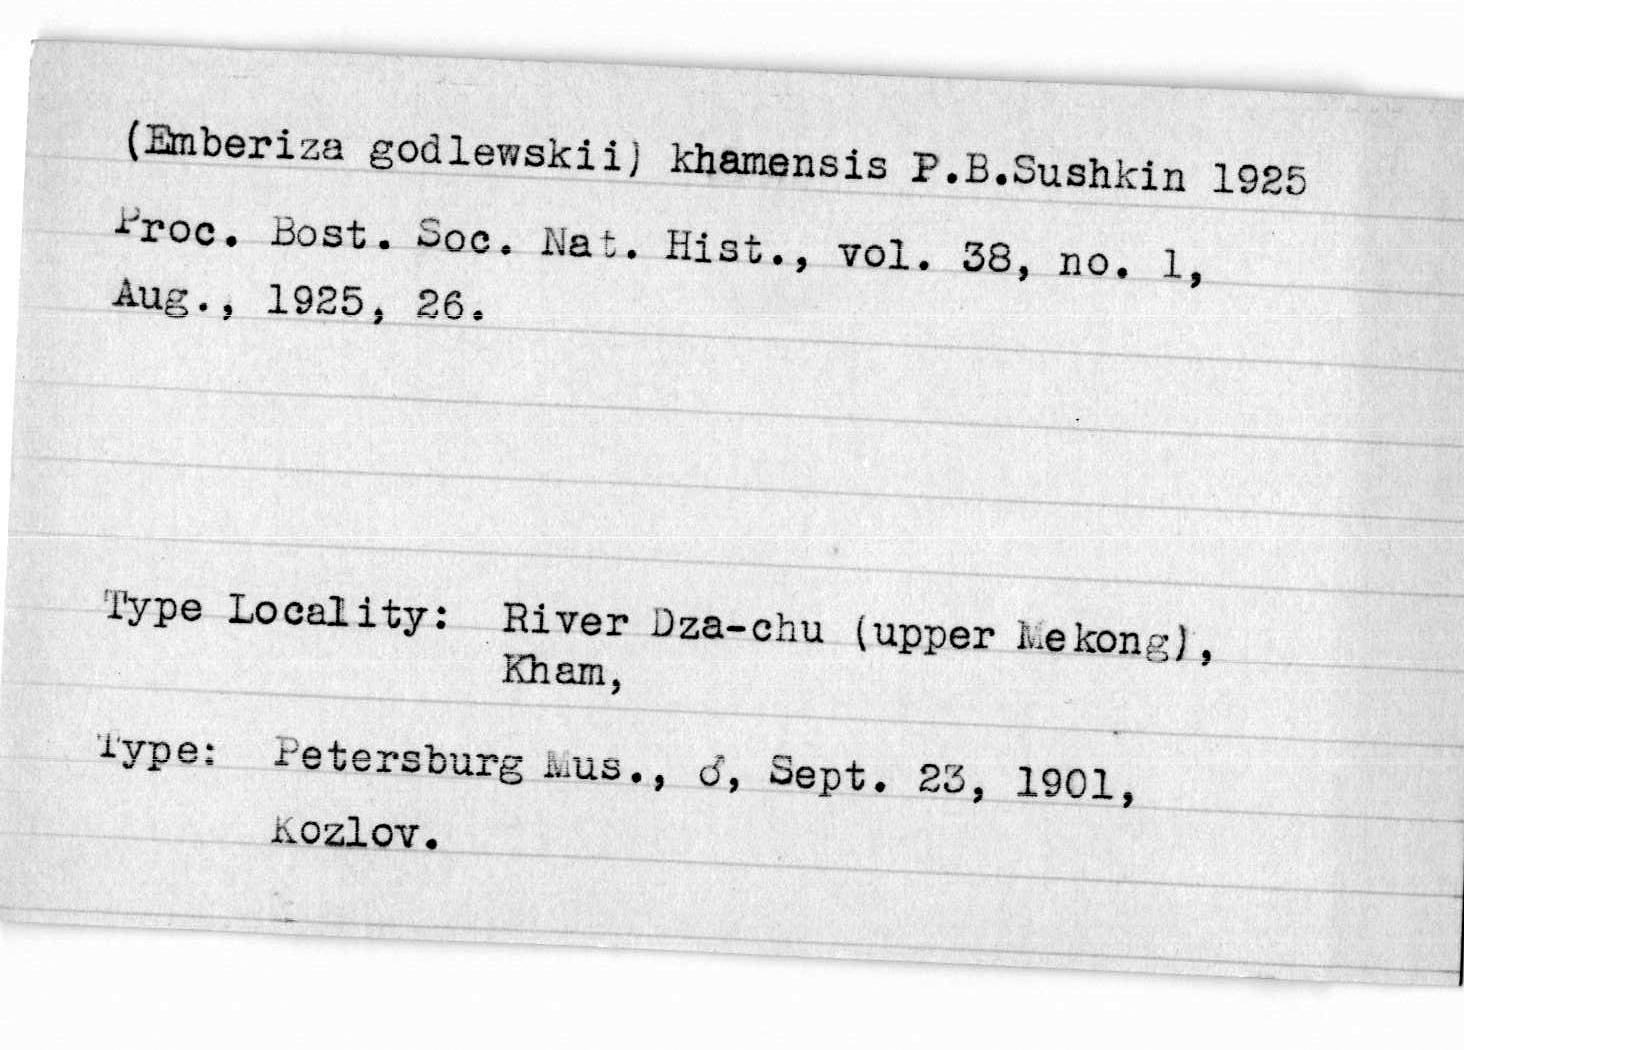 (Emberiza godlewskii) khamensis P.B.Sushkin 1925
Proc. Bost. Soc. Nat. Hist., vol. 38, no. 1,
Aug., 1925, 26.
Type Locality: River Dza-chu (upper Mekong),
Kham,
Type: Petersburg Mus., ♂, Sept. 23, 1901,
Kozlov.